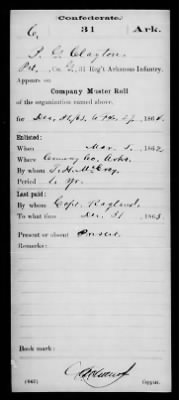 Confederate.
C 31 Ark.
J. G. Clayton
Pvt., Co. G, 31 Reg't Arkansas Infantry.
Appears on
Company Muster Roll
of the organization named above,
for Dec. 31/63, to Apl. 27, 1864.
Enlisted:
When Mar. 5, 1862
Where Conway Co. Arks.
By whom T. H. McCray
Period
Last paid:
By whom Capt. Ragland
To what time Dec. 31, 1863.
Present or absent Present
Remarks:
Book mark:
(642) Copyist.